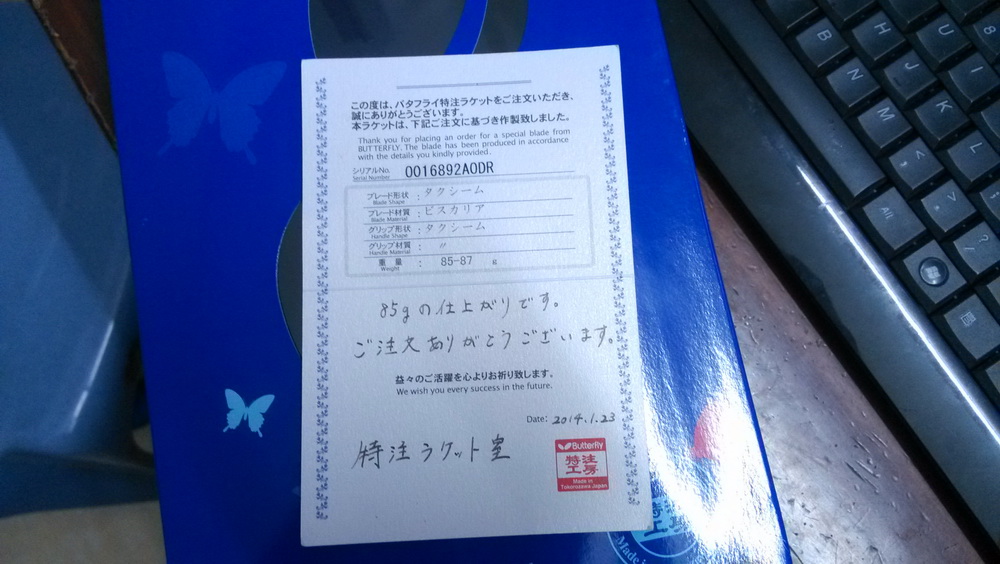 この度は、バタフライ特注ラケットをご注文いただき、
誠にありがとうございます。
本ラケットは、下記ご注文に基づき作製致しました。
Thank you for placing an order for a special blade from
BUTTERFLY. The blade has been produced in accordance
with the details you kindly provided.
シリアルNo. 0016892AODR
Serial Number
ブレード形状 : タクシーム
Blade Shape
ブレード材質 : ビスカリア
Blade Material
グリップ形状 : タクシーム
Handle Shape
グリップ材質 : 〃
Handle Material
重量 : 85-87 g
Weight
85gの仕上がりです。
ご注文ありがとうございます。
益々のご活躍を心よりお祈り致します。
We wish you every success in the future.
Date: 2014.1.23
特注ラケット室
Butterfly
特注
工房
Made in
Tokorozawa Japan
Made
B
H
U
8
N
J
I
M
K
L
Alt